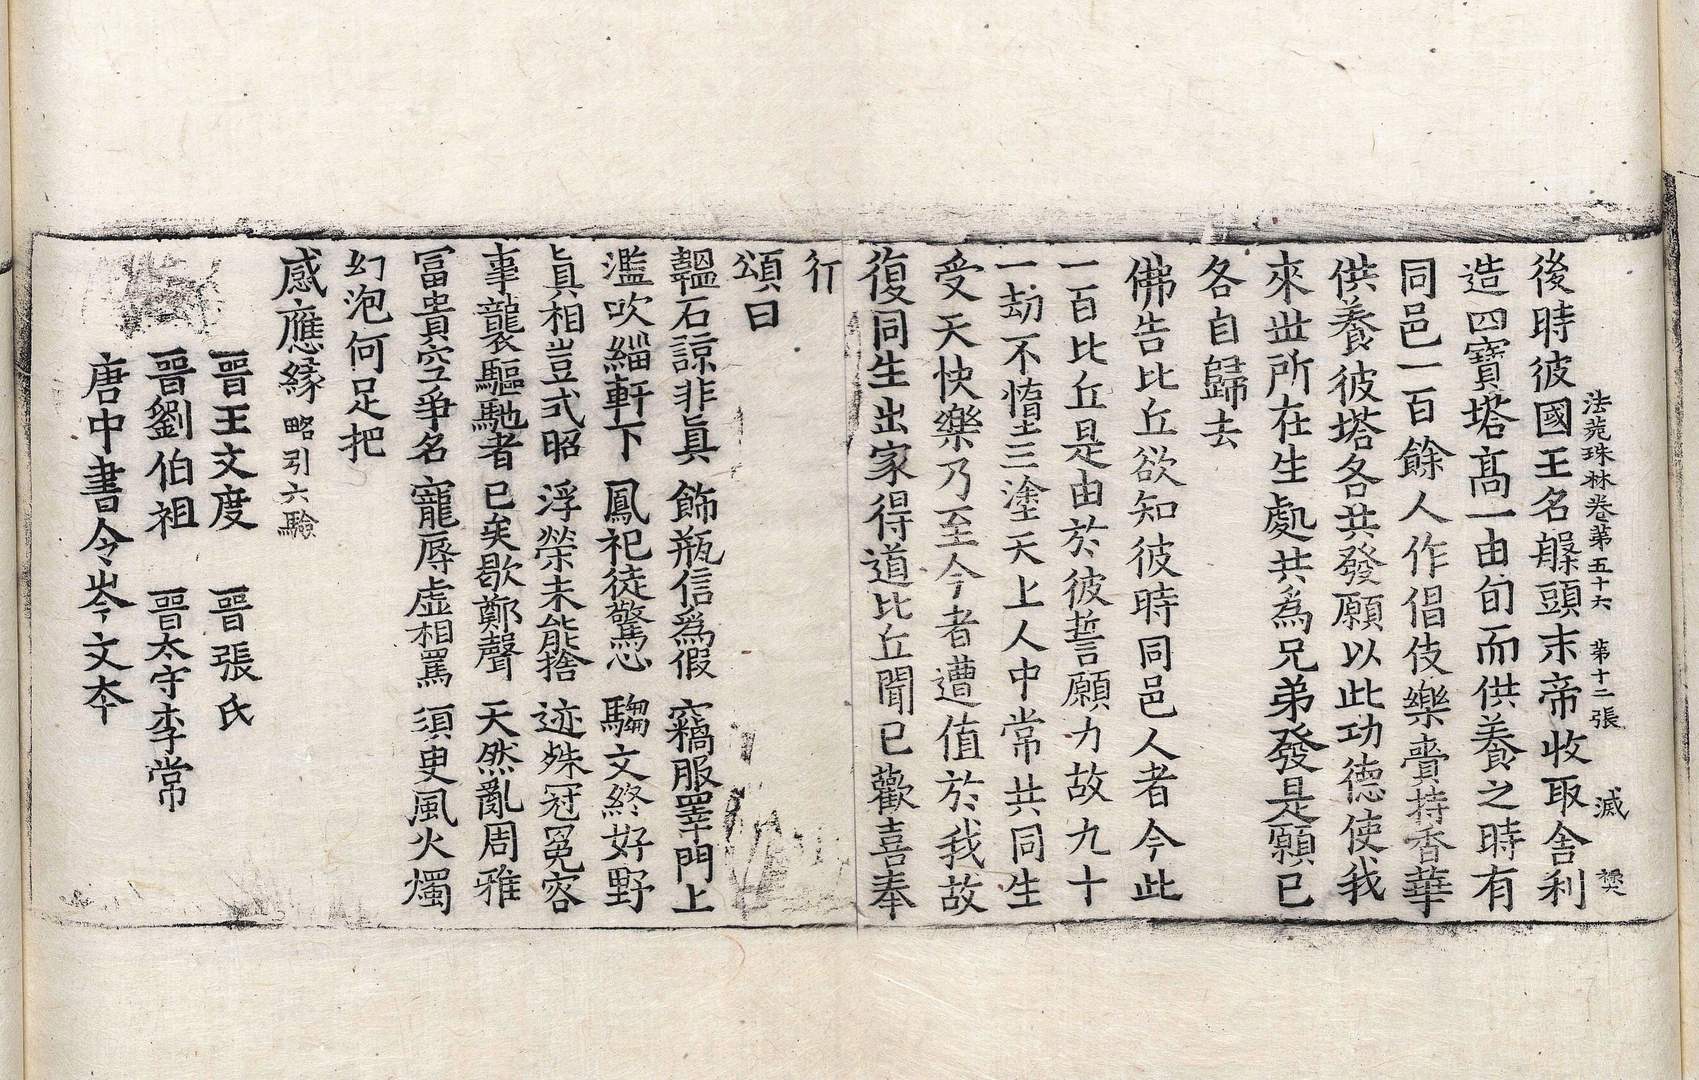 法苑珠林卷第五十六 第十二張 滅 㷼
後時彼國王名槃頭末帝收取舍利
造四寶塔高一由旬而供養之時有
同邑一百餘人作倡伎樂賷持香華
供養彼塔各共發願以此功德使我
來世所在生處共為兄弟發是願已
各自歸去
佛告比丘欲知彼時同邑人者今此
一百比丘是由於彼誓願力故九十
一劫不憜三塗天上人中常共同生
受天快樂乃至今者遭值於我故
復同生出家得道比丘聞已歡喜奉
行
頌曰
韞石諒非眞 飾瓶信爲假 竊服睪門上
濫吹緇軒下 鳳祀徒驚心 騶文終好野
眞相豈式昭 浮榮未能捨 迹殊冠冕客
事襲驅馳者 已矣歇鄭聲 天然亂周雅
冨貴空爭名 寵辱虛相罵 須臾風火燭
幻泡何足把
感應緣 略引六驗
晉王文度 晉張氏
晉劉伯祖 晉太守李常
唐中書令岑文本